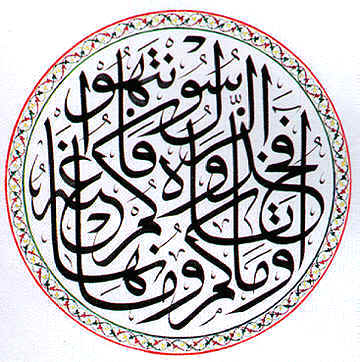 وما آتاكم الرسول فخذوه وما نهاكم عنه فانتهوا